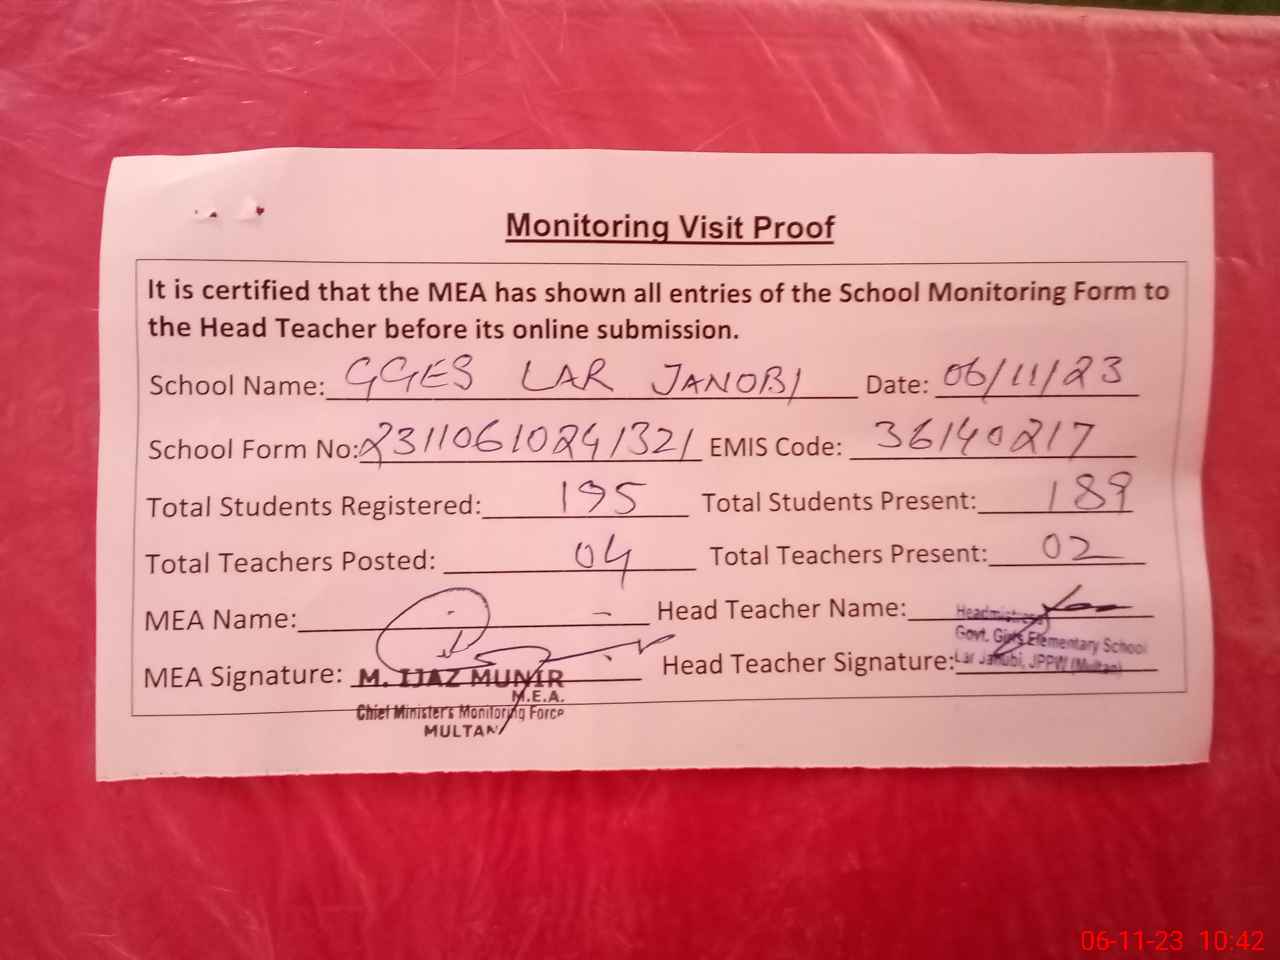 Monitoring Visit Proof
It is certified that the MEA has shown all entries of the School Monitoring Form to
the Head Teacher before its online submission.
School Name: GGES LAR JANOBI Date: 06/11/23
School Form No: 23110610241321 EMIS Code: 36140217
Total Students Registered: 195 Total Students Present: 189
Total Teachers Posted: 04 Total Teachers Present: 02
MEA Name: Head Teacher Name: Headmistress
Govt. Girls Elementary School
MEA Signature: M. IJAZ MUNIR Head Teacher Signature: Lar Janubi, JPPW (Multan)
M.E.A.
Chief Minister's Monitoring Force
MULTAN
06-11-23 10:42